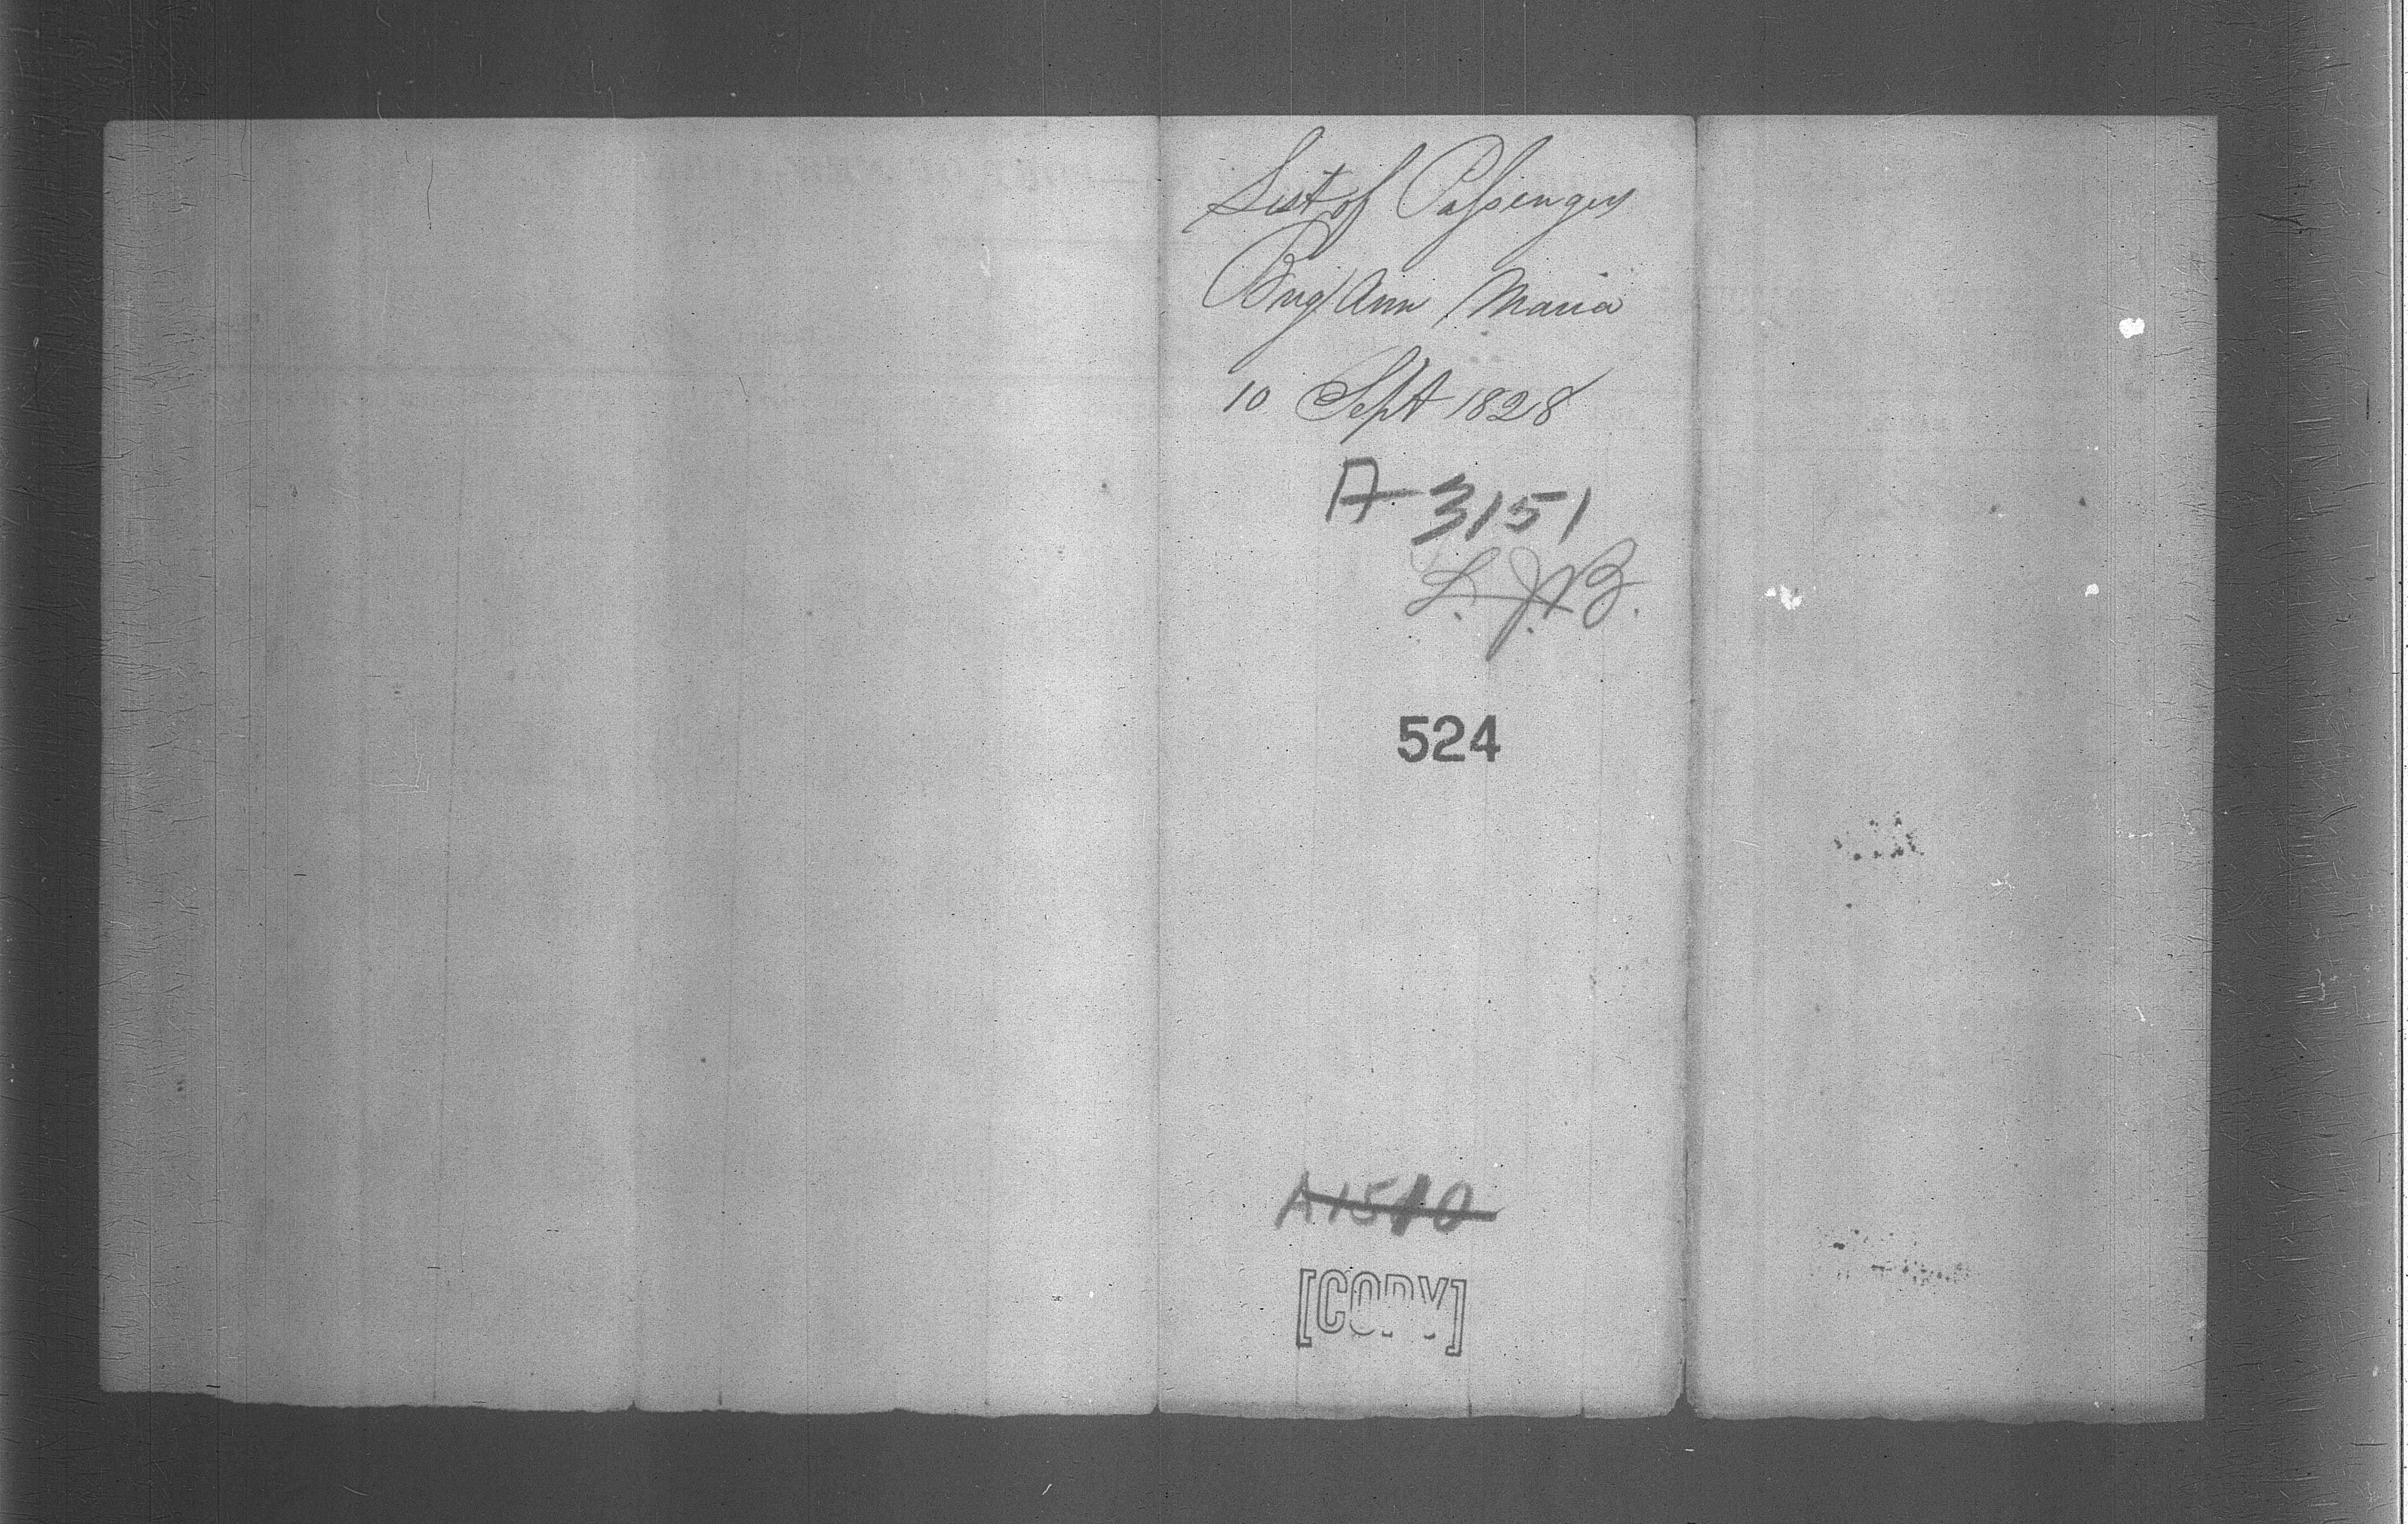 List of Passengers
Brig Ann Maria
10 Sept 1828
A-3151
L.J.B.
524
A1510
[COPY]